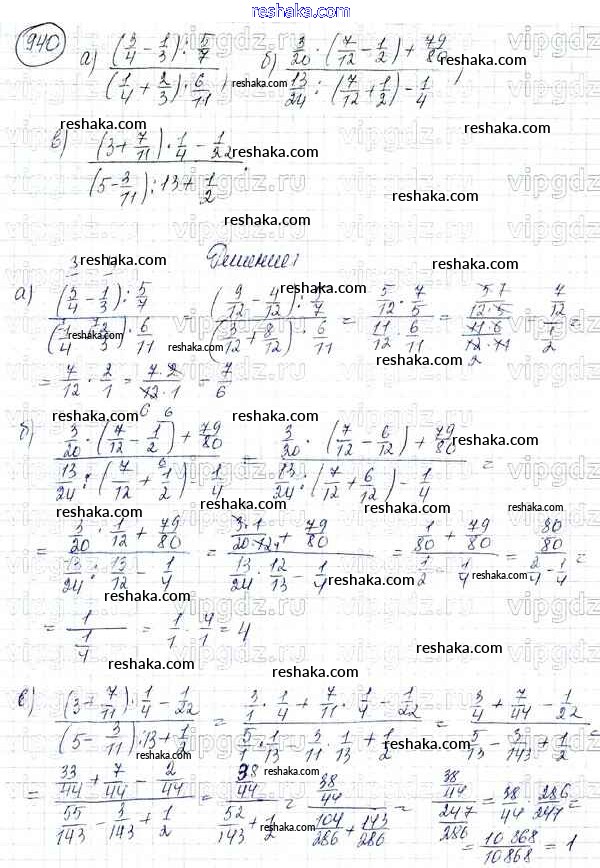 reshaka.ru
940 а) ((3/4 - 1/3) : 5/7) / ((1/4 + 2/3) · 6/11), б) (3/20 · (7/12 - 1/2) + 79/80) / (13/24 : (7/12 + 1/2) - 1/4),
в) ((3 + 7/11) · 1/4 - 1/22) / ((5 - 3/11) : 13 + 1/2).
Решение:
а) ((3/4 - 1/3) : 5/7) / ((1/4 + 2/3) · 6/11) = ((9/12 - 4/12) : 5/7) / ((3/12 + 8/12) · 6/11) = (5/12 · 7/5) / (11/12 · 6/11) = (5·7 / 12·5) / (11·6 / 12·11) = (7/12) / (1/2) =
= 7/12 · 2/1 = 7·2 / 12·1 = 7/6
б) (3/20 · (7/12 - 1/2) + 79/80) / (13/24 : (7/12 + 1/2) - 1/4) = (3/20 · (7/12 - 6/12) + 79/80) / (13/24 : (7/12 + 6/12) - 1/4) =
= (3/20 · 1/12 + 79/80) / (13/24 : 13/12 - 1/4) = (3·1 / 20·12 + 79/80) / (13/24 · 12/13 - 1/4) = (1/80 + 79/80) / (1/2 - 1/4) = (80/80) / (2/4 - 1/4) =
= 1 / (1/4) = 1/1 · 4/1 = 4
в) ((3 + 7/11) · 1/4 - 1/22) / ((5 - 3/11) : 13 + 1/2) = (3/1 · 1/4 + 7/11 · 1/4 - 1/22) / (5/1 · 1/13 - 3/11 · 1/13 + 1/2) = (3/4 + 7/44 - 1/22) / (5/13 - 3/143 + 1/2) =
= (33/44 + 7/44 - 2/44) / (55/143 - 3/143 + 1/2) = (38/44) / (52/143 + 1/2) = (38/44) / (104/286 + 143/286) = (38/44) / (247/286) = 38/44 · 286/247 =
= 10868/10868 = 1